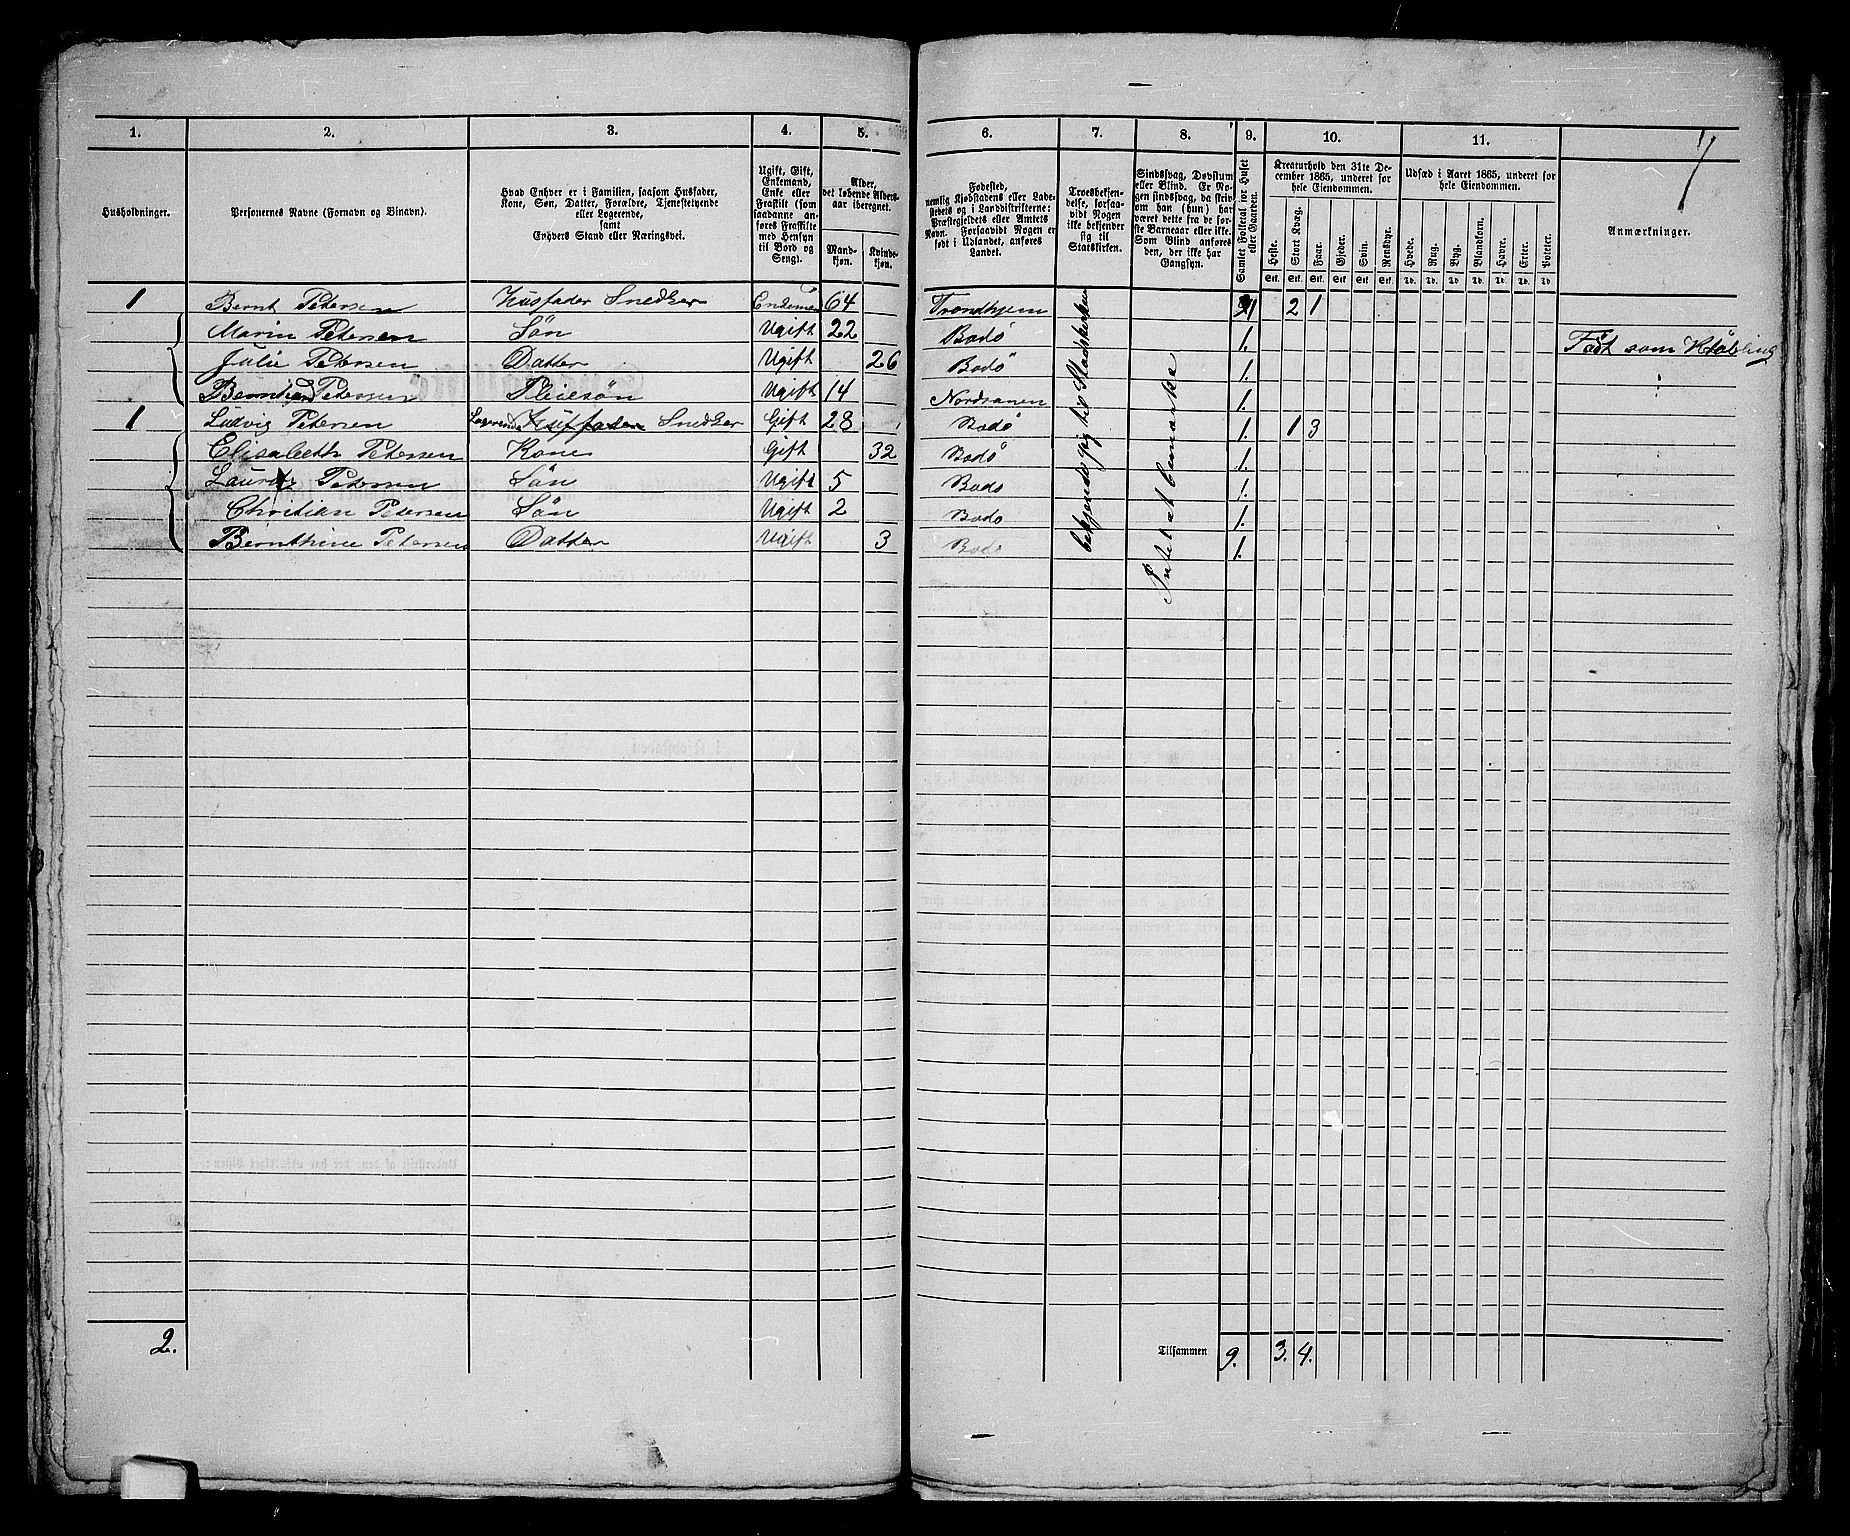 1. 2. 3. 4. 5. 6. 7. 8. 9. 10. 11. 7
Husholdninger.
Personernes Navne (Fornavn og Binavn).
Hvad Enhver er i Familien, saasom Husfader,
Kone, Søn, Datter, Forældre, Tjenestetyende
eller Logerende,
samt
Enhvers Stand eller Næringsvei.
Ugift, Gift,
Enkemand,
Enke eller
Fraskilt (som
saadanne an-
føres Fraskilte
med Hensyn
til Bord og
Seng).
Alder,
det løbende Alders-
aar iberegnet.
Mand-
kjøn.
Kvinde-
kjøn.
Fødested,
nemlig Kjøbstadens eller Lade-
stedets og i Landdistrikterne:
Præstegjeldets eller Amtets
Navn. Forsaavidt Nogen er
født i Udlandet, anføres
Landet.
Troesbekjen-
delse, forsaa-
vidt Nogen
ikke bekjender
sig til
Statskirken.
Sindssvag, Døvstum
eller Blind. Er No-
gen sindssvag, da skriv
om han (hun) har
været dette fra de før-
ste Barneaar eller ikke.
Som Blind anføres
den, der ikke har
Gangsyn.
Samlet Folketal for Huset
eller Gaarden.
Kreaturhold den 31te De-
cember 1865, underet for
hele Eiendommen.
Heste. Stort Kvæg. Faar. Gjeder. Svin. Rensdyr.
Stk. Stk. Stk. Stk. Stk. Stk.
Udsæd i Aaret 1865, underet for
hele Eiendommen.
Hvede. Rug. Byg. Blandkorn. Havre. Erter. Poteter.
Td. Td. Td. Td. Td. Td. Td.
Anmærkninger.
1 Bernt Petersen Husfader Snedker 64 Trondhjem 1 2 1
Marin Petersen Søn Ugift 22 Bodø 1. Født som Hvebling
Julie Petersen Datter Ugift 26 Bodø 1.
Petersen Pleiesøn Ugift 14 Nordranen 1.
1 Ludvig Petersen Logerend Husfader Snedker Gift 28 Bodø 1. 1 3
Elisabeth Petersen Kone Gift 32 Bodø 1.
Petersen Søn Ugift 5 Bodø 1.
Christian Petersen Søn Ugift 2 Bodø 1.
Bernthine Petersen Datter Ugift 3 Bodø 1.
bekjende sig til Stadskirken
Intet at bemærke
2. Tilsammen 9. 3. 4.